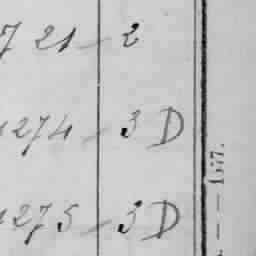 7 21 - 2
1274 - 3 D
1275 - 3 D